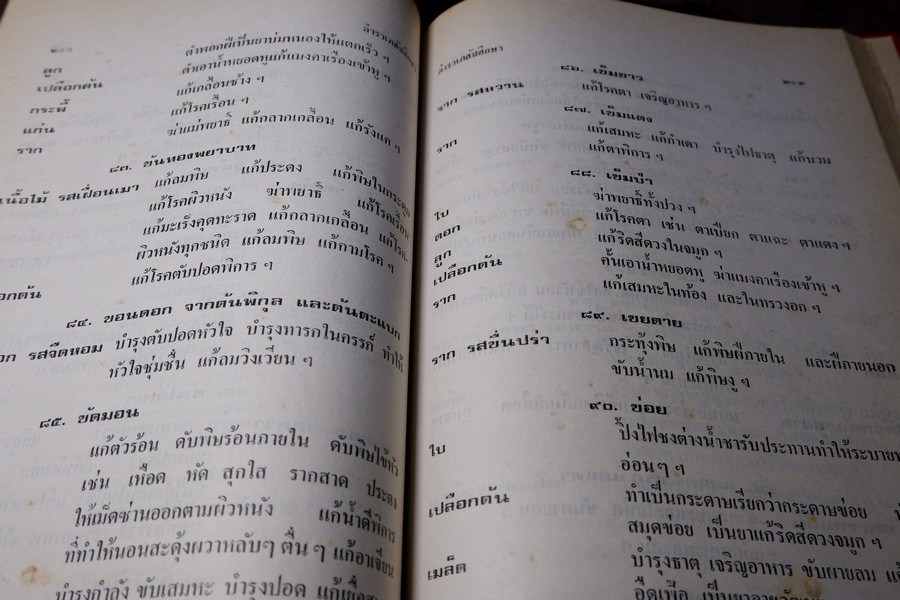 ๒๐๘
ตำราเภสัชศึกษา
ลูก ตำพอกฝีเป็นยาบ่มหนองให้แตกเร็ว ฯ
เปลือกต้น ตำเอาน้ำหยอดหูแก้แมงคาเรืองเข้าหู ฯ
กระพี้ แก้เกลื้อนช้าง ฯ
แก่น แก้โรคเรื้อน ฯ
ราก ฆ่าแม่พยาธิ์ แก้กลากเกลื้อน แก้รังแค ฯ
๘๓. ขันทองพยาบาท
เนื้อไม้ รสเฝื่อนเมา แก้ลมพิษ แก้ประดง แก้พิษในกระดูก
แก้โรคผิวหนัง ฆ่าพยาธิ์ แก้โรคเรื้อน
แก้มะเร็งคุดทะราด แก้กลากเกลื้อน แก้โรค
ผิวหนังทุกชนิด แก้ลมพิษ แก้กามโรค ฯ
แก้โรคตับปอดพิการ ฯ
๘๔. ขอนดอก จากต้นพิกุล และต้นตะแบก
รสจืดหอม บำรุงตับปอดหัวใจ บำรุงทารกในครรภ์ ทำให้
หัวใจชุ่มชื่น แก้ลมวิงเวียน ฯ
๘๕. ขัดมอน
แก้ตัวร้อน ดับพิษร้อนภายใน ดับพิษไข้หัว
เช่น เหือด หัด สุกใส รากสาด ประดง
ให้เม็ดซ่านออกตามผิวหนัง แก้น้ำดีพิการ
ที่ทำให้นอนสะดุ้งผวาหลับๆ ตื่น ๆ แก้อาเจียน
บำรุงกำลัง ขับเสมหะ บำรุงปอด
ตำราเภสัชศึกษา
๒๐๙
๘๖. เข็มขาว
ราก รสหวาน แก้โรคตา เจริญอาหาร ฯ
๘๗. เข็มแดง
ราก แก้เสมหะ แก้กำเดา บำรุงไฟธาตุ แก้บวม
แก้ตาพิการ ฯ
๘๘. เข็มป่า
ใบ ฆ่าพยาธิ์ทั้งปวง ฯ
ดอก แก้โรคตา เช่น ตาเปียก ตาแฉะ ตาแดง ฯ
ลูก แก้ริดสีดวงในจมูก ฯ
เปลือกต้น คั้นเอาน้ำหยอดหู ฆ่าแมงคาเรืองเข้าหู ฯ
ราก แก้เสมหะในท้อง และในทรวงอก ฯ
๘๙. เขยตาย
ราก รสขื่นปร่า กระทุ้งพิษ แก้พิษฝีภายใน และฝีภายนอก
ขับน้ำนม แก้พิษงู ฯ
๙๐. ข่อย
ใบ ปิ้งไฟชงต่างน้ำชารับประทานทำให้ระบายท้อง
อ่อนๆ ฯ
เปลือกต้น ทำเป็นกระดาษเรียกว่ากระดาษข่อย
สมุดข่อย เป็นยาแก้ริดสีดวงจมูก ฯ
เมล็ด บำรุงธาตุ เจริญอาหาร ขับผายลม